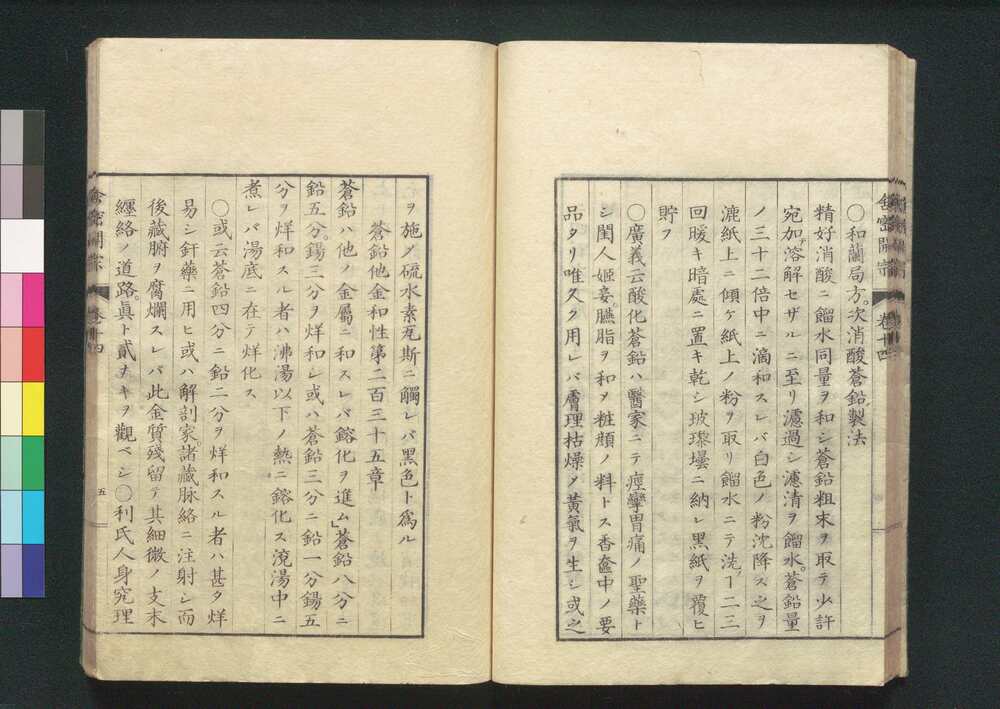 舎密開宗 卷十四
○和蘭局方。次消酸蒼鉛製法
精好消酸ニ餾水同量ヲ和シ蒼鉛粗末ヲ取テ少許
宛加ヘ溶解セザルニ至リ濾過シ濾清ヲ餾水。蒼鉛量
ノ三十二倍中ニ滴和スレバ白色ノ粉沈降ス之ヲ
漉紙上ニ傾ケ紙上ノ粉ヲ取リ餾水ニテ洗フ一二三
回暖キ暗處ニ置キ乾シ玻瓈壜ニ納レ黒紙ヲ覆ヒ
貯フ
○廣義云酸化蒼鉛ハ醫家ニテ痙攣胃痛ノ聖藥ト
シ閨人姬妾臙脂ヲ和ヲ粧顔ノ料トス香奩中ノ要
品タリ唯久ク用レバ膚理枯燥ノ黄氣ヲ生シ或之
ヲ施メ硫水素瓦斯ニ觸レバ黒色ト爲ル
蒼鉛他金和性第二百三十五章
蒼鉛ハ他ノ金屬ニ和スレバ鎔化ヲ進ム」蒼鉛八分ニ
鉛五分。錫三分ヲ烊和シ或ハ蒼鉛三分ニ鉛一分錫五
分ヲ烊和スル者ハ沸湯以下ノ熱ニ鎔化ス滾湯中ニ
煮レバ湯底ニ在テ烊化ス
○或云蒼鉛四分ニ鉛二分ヲ烊和スル者ハ甚タ烊
易シ釬藥ニ用ヒ或ハ解剖家。諸藏脉絡ニ注射シ而
後藏腑ヲ腐爛スレバ此金質殘留テ其細微ノ支末
纏絡ノ道路。眞ト貳ヲナキヲ觀ベシ○利氏人身究理
舎密開宗 卷十四
五